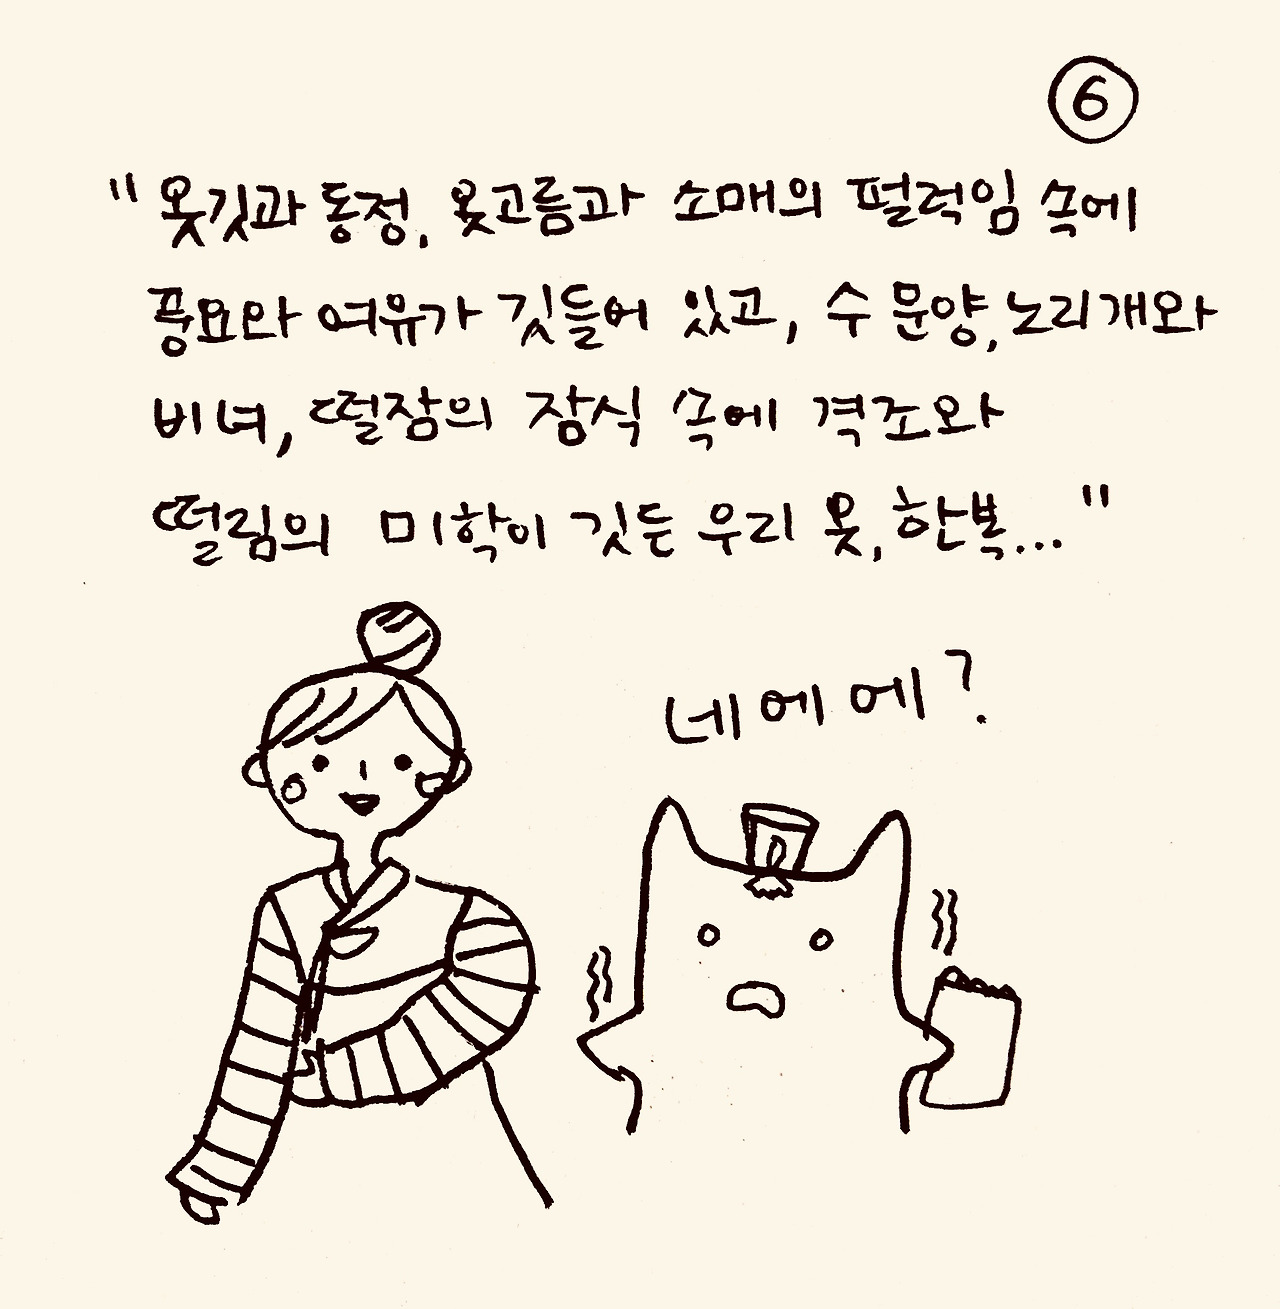 ⑥
"옷깃과 동정, 옷고름과 소매의 펄럭임 속에
풍요와 여유가 깃들어 있고, 수 문양, 노리개와
비녀, 떨잠의 잠식 속에 격조와
떨림의 미학이 깃든 우리 옷, 한복..."
네에에?